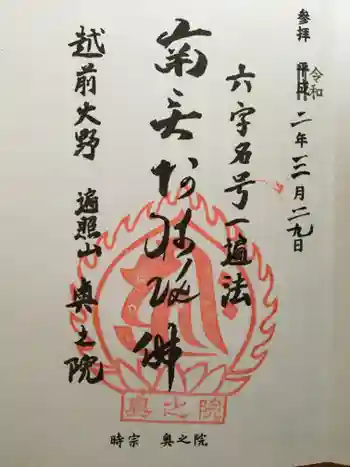 参拝 平成 令和 二年三月二九日
六字名号一遍法
南無阿弥陀佛
越前大野 遍照山 奥之院
奥之院
時宗 奥之院